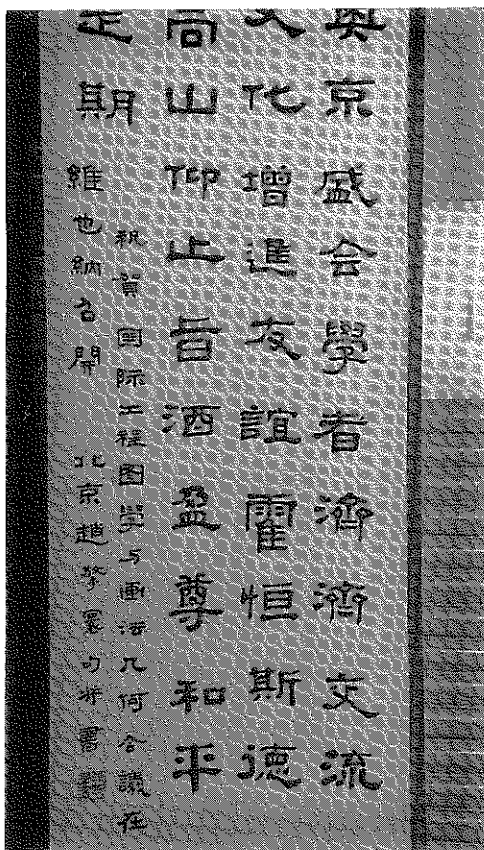 奥京盛会學者濟濟交流
文化增進友誼霍恒斯德
高山仰止旨酒盈尊和平
是期
祝賀国际工程图學与画法几何会議在
維也納召開 北京趙擎寰句并書